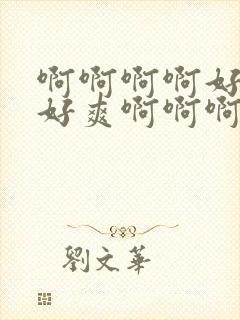 啊啊啊啊好
好爽啊啊啊
劉文華